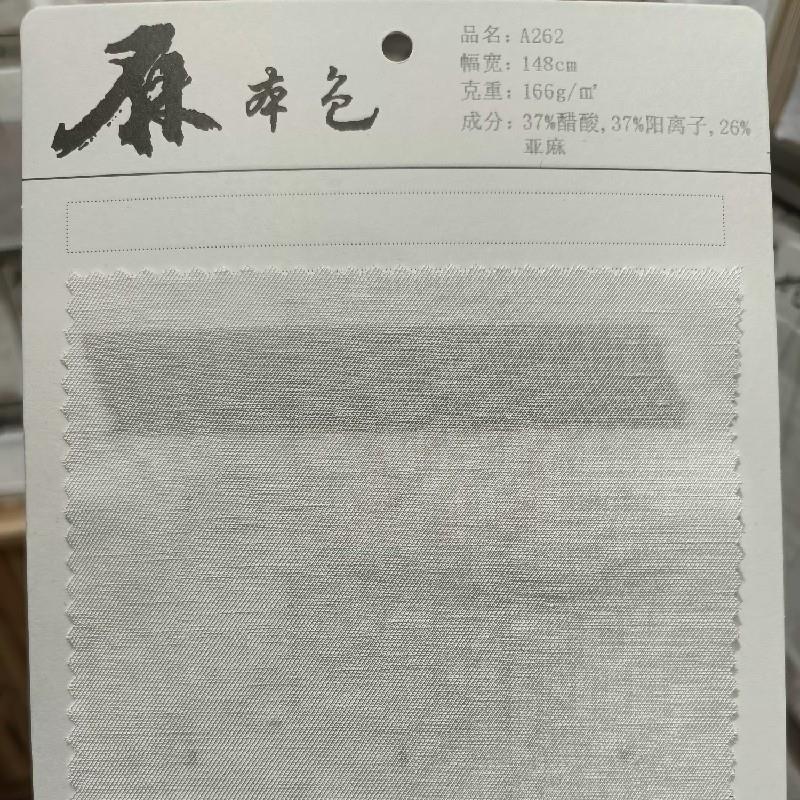 麻本色
品名：A262
幅宽：148cm
克重：166g/㎡
成分：37%醋酸,37%阳离子,26%
亚麻